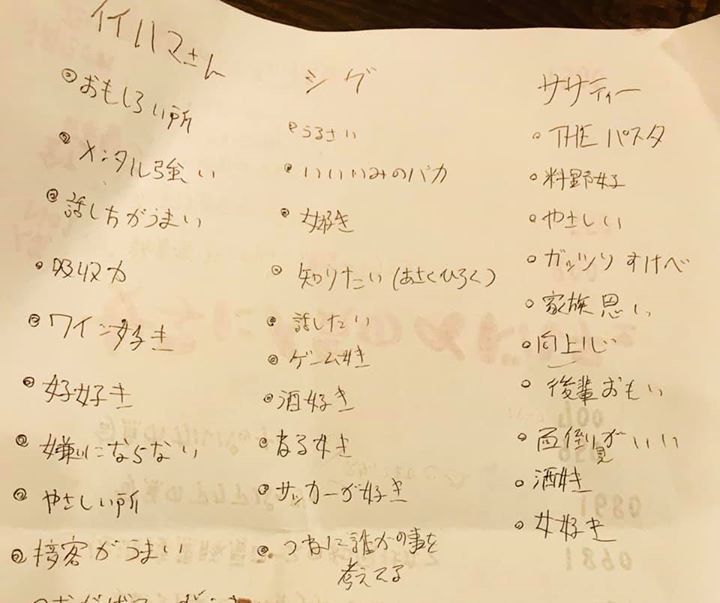 イイハマさん
おもしろい所
メンタル強い
話し方がうまい
吸収力
ワイン好き
女好き
嫌いにならない
やさしい所
接客がうまい
シゲ
うるさい
いいいみのバカ
女好き
知りたい(あさくひろく)
話したい
ゲーム好き
酒好き
好き
サッカーが好き
つねに誰かの事を
考えてる
ササティー
THE パスタ
料理好
やさしい
ガッツリ すけべ
家族思い
向上心
後輩おもい
面倒見がいい
酒好き
女好き